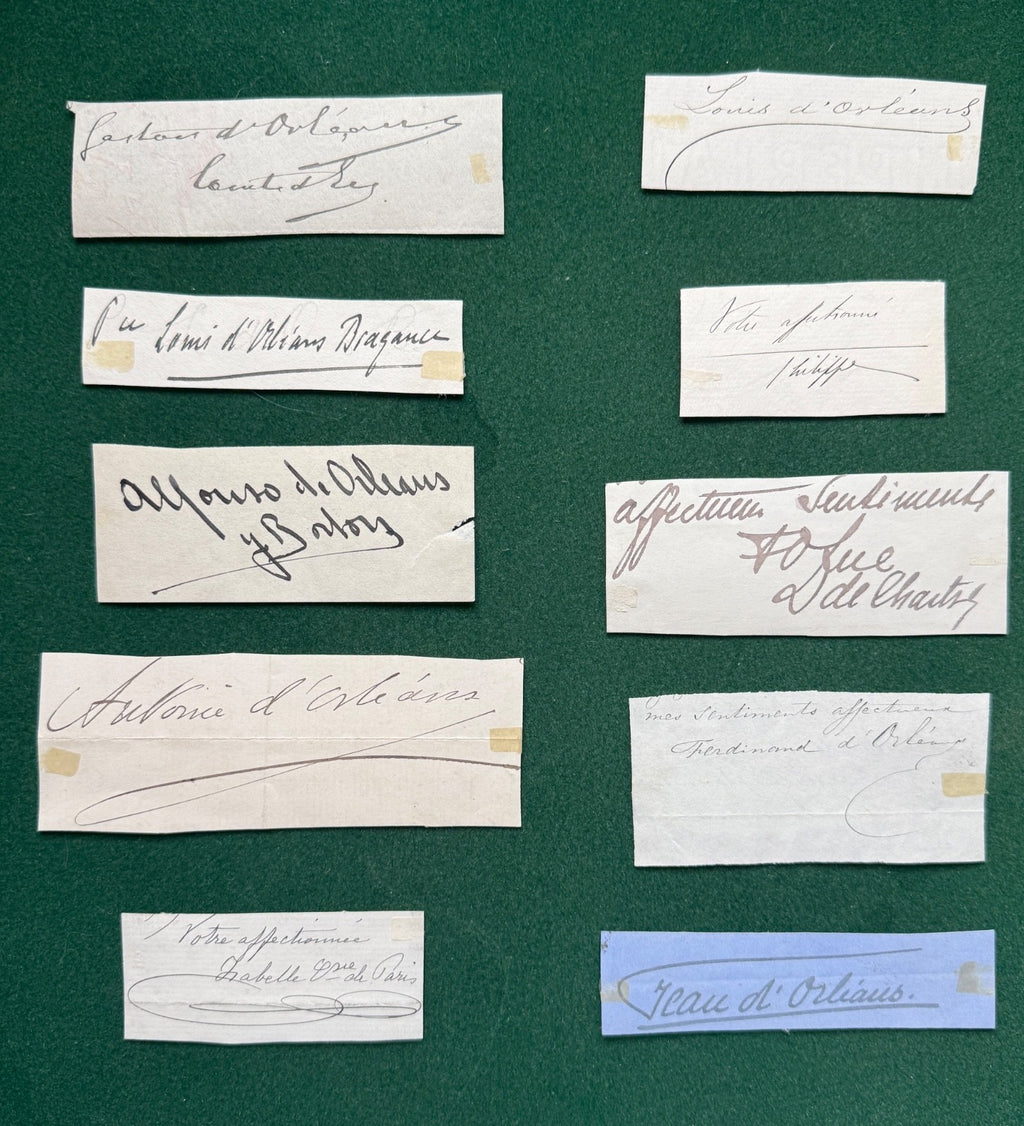 Gaston d'Orléans
Comte d'Eu
Louis d'Orléans
Pce Louis d'Orléans Bragance
Votre affectionné
Philippe
Alfonso de Orleans
y Borbon
affectueux Sentiments
de Chartres
Antoine d'Orléans
mes sentiments affectueux
Ferdinand d'Orléans
Votre affectionnée
Isabelle Csse de Paris
Jean d'Orléans.